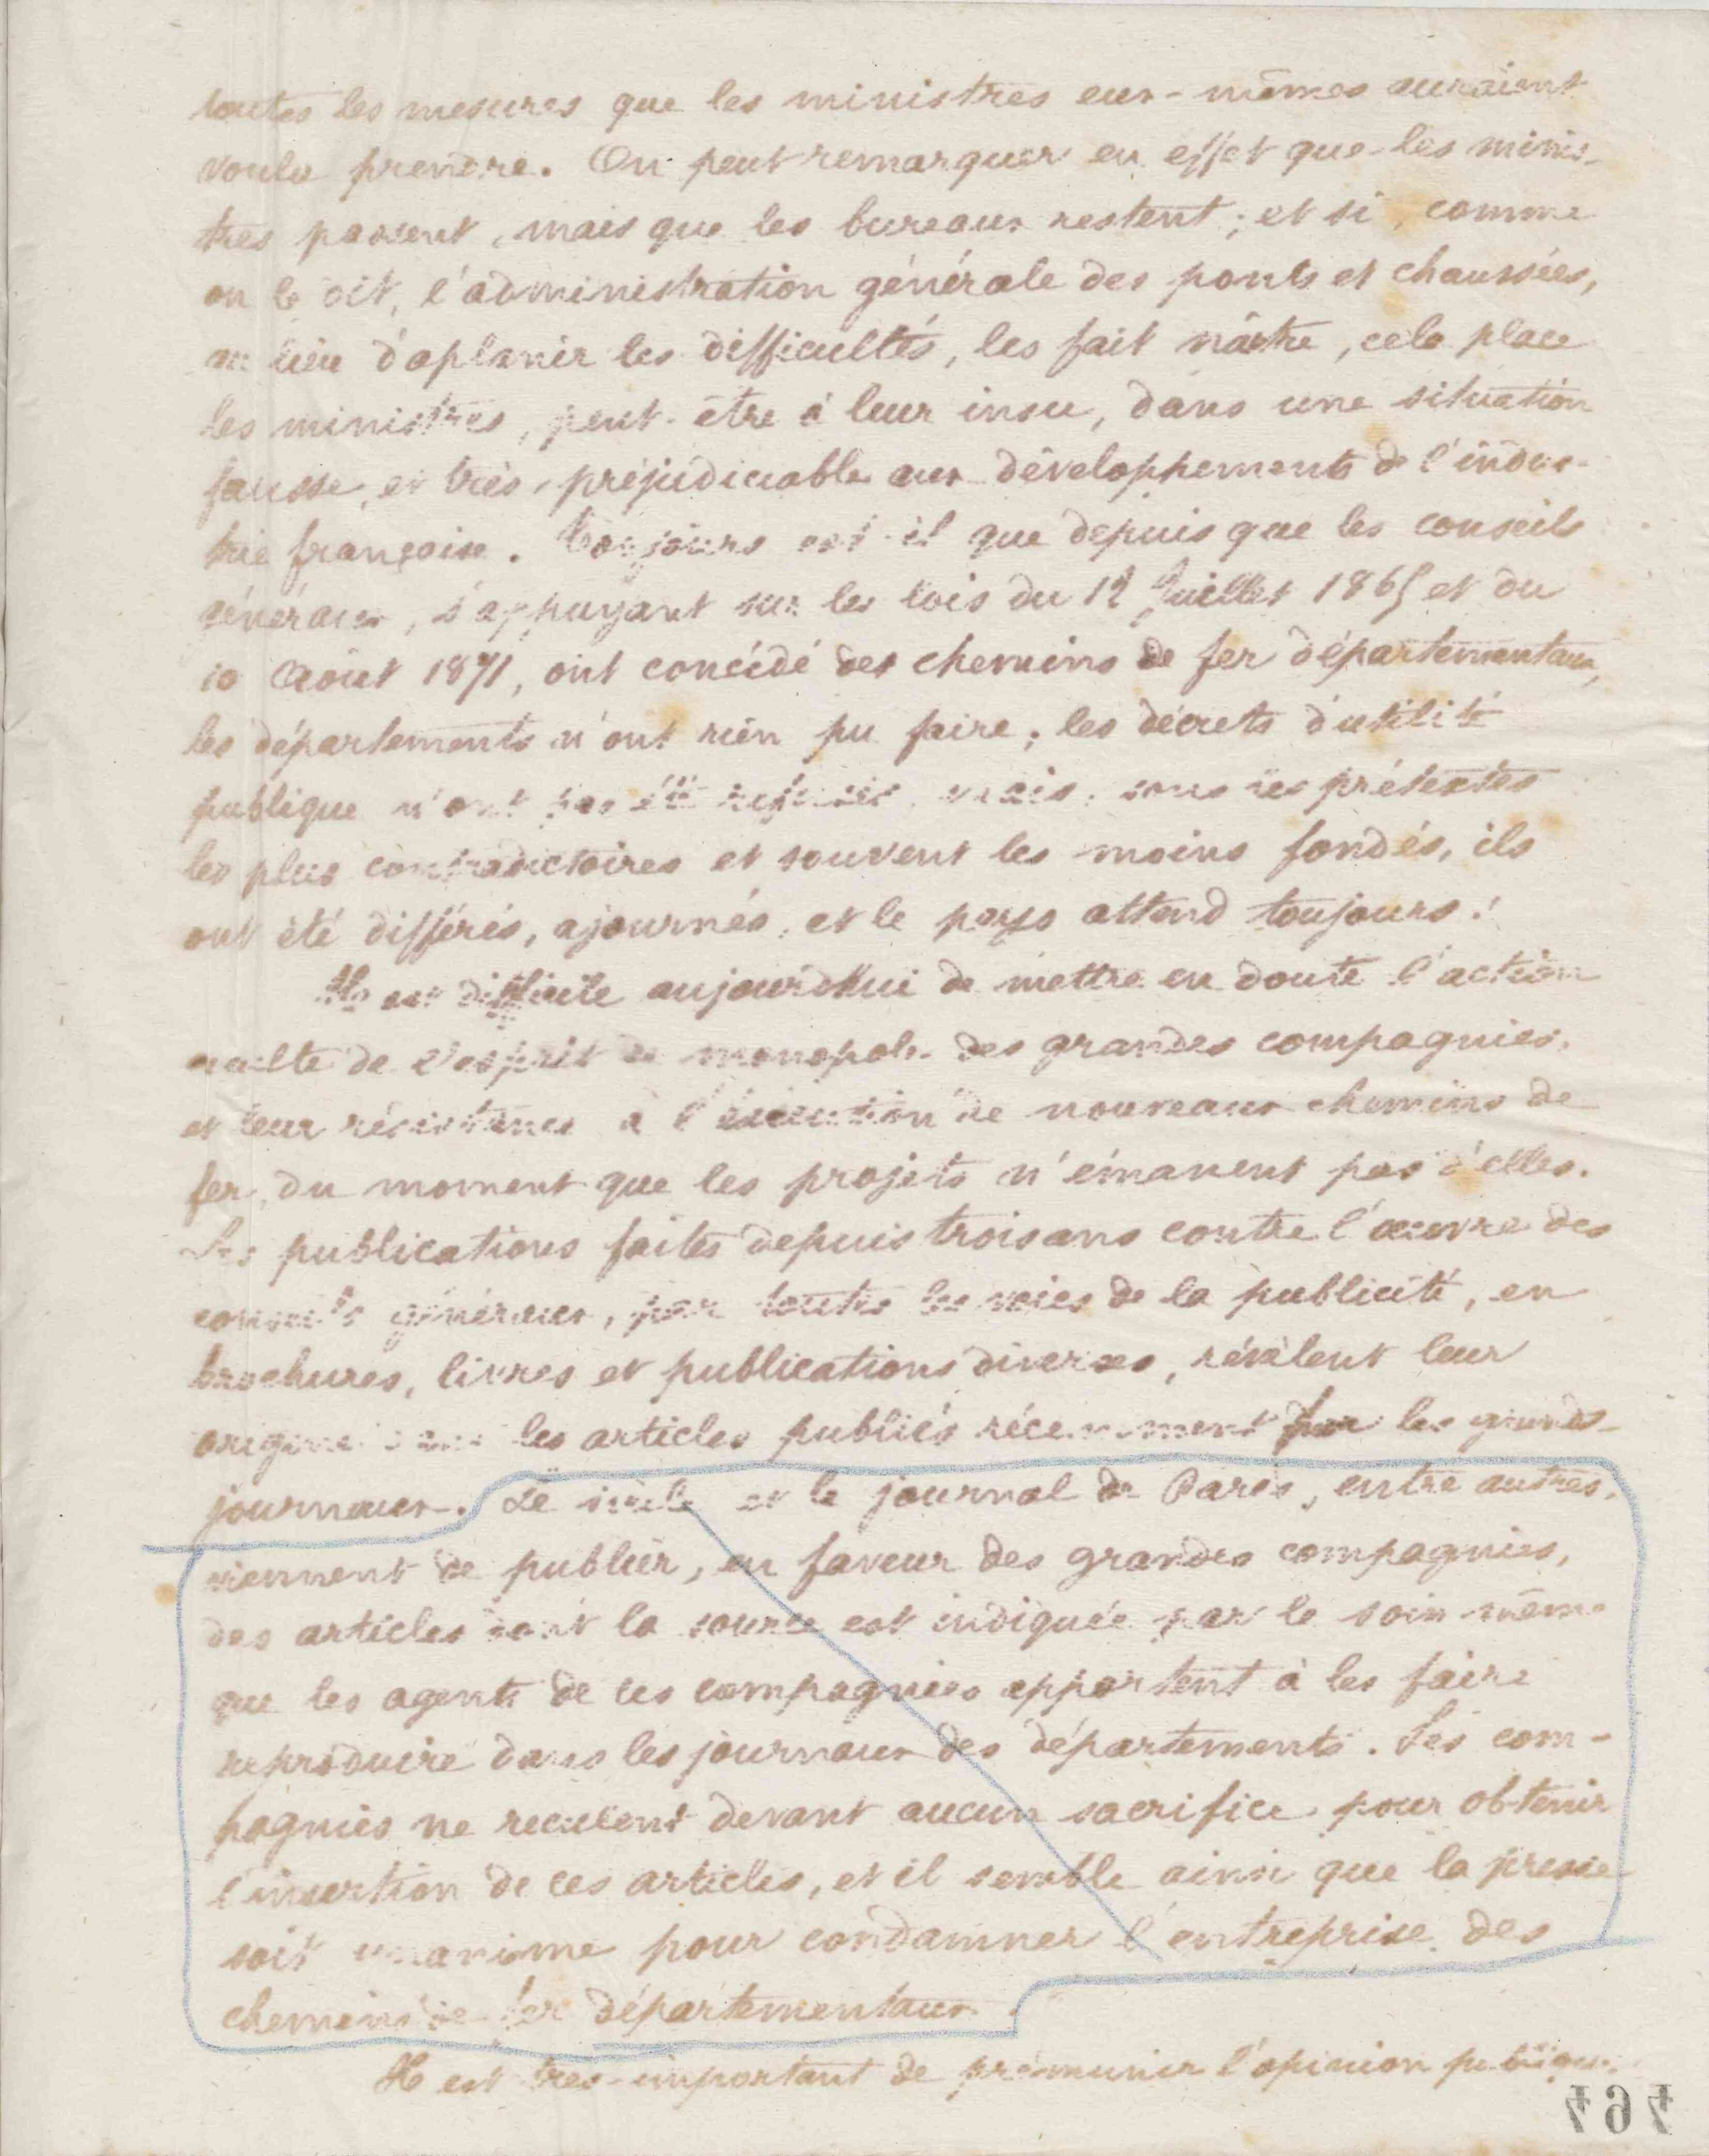 toutes les mesures que les ministres eux-mêmes auraient
voulu prendre. On peut remarquer en effet que les minis-
tres passent, mais que les bureaux restent; et si, comme
on le dit, l'administration générale des ponts et chaussées,
au lieu d'aplanir les difficultés, les fait naître, cela place
les ministres, peut-être à leur insu, dans une situation
fausse, et très préjudiciable aux développements de l'indus-
trie française. Toujours est-il que depuis que les conseils
généraux, s'appuyant sur les lois du 12 Juillet 1865 et du
10 Août 1871, ont concédé des chemins de fer départementaux,
les départements n'ont rien pu faire; les décrets d'utilité
publique n'ont pas été refusés, mais, sous les prétextes
les plus contradictoires et souvent les moins fondés, ils
ont été différés, ajournés, et le pays attend toujours!
Il est difficile aujourd'hui de mettre en doute l'action
occulte de l'esprit de monopole des grandes compagnies,
et leur résistance à l'exécution de nouveaux chemins de
fer, du moment que les projets n'émanent pas d'elles.
Les publications faites depuis trois ans contre l'œuvre des
conseils généraux, par toutes les voies de la publicité, en
brochures, livres et publications diverses, révèlent leur
origine les articles publiés récemment par les grands
journaux. Le siècle et le journal de Paris, entre autres,
viennent de publier, en faveur des grandes compagnies,
des articles dont la source est indiquée par le soin même
que les agents de ces compagnies apportent à les faire
reproduire dans les journaux des départements. Les com-
pagnies ne reculent devant aucun sacrifice pour obtenir
l'insertion de ces articles, et il semble ainsi que la presse
soit unanime pour condamner l'entreprise des
chemins de fer départementaux.
Il est très-important de prémunir l'opinion publique
464